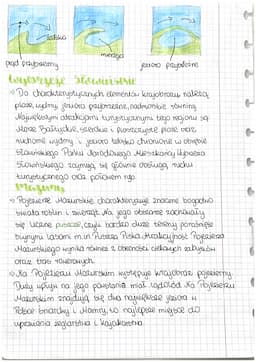 zatoka
mierzeja
prąd przybrzeżny
jezioro przybrzeżne
Wybrzeże Słowińskie
Do charakterystycznych elementów krajobrazu należą
plaże, wydmy, jeziora przybrzeżne, nadmorskie równiny
Największymi atrakcjami turystycznymi tego regionu są
Morze Bałtyckie, szerokie i piaszczyste plaże oraz
ruchome wydmy i jeziora
Słowińskiego Parku Narodowego. Mieszkańcy Wybrzeża
Słowińskiego zajmują się głównie obsługą ruchu
turystycznego oraz
Mazury
Pojezierze Mazurskie charakteryzuje znacznie bogactwo
świata roślin i zwierząt. Na jego obszarze zachowały
się liczne puszcze, czyli bardzo duże tereny porośnięte
bujnymi lasami m.in. Puszcza Piska. Atrakcyjność Pojezierza
Mazurskiego wynika również z obecności ciekawych zabytków
oraz tras rowerowych.
Na Pojezierzu Mazurskim występuje krajobraz pojezierny
Duży wpływ na jego powstanie miał lądolód. Na Pojezierzu
Mazurskim znajdują się dwa największe jeziora w
Polsce Śniardwy i Mamry, są najlepsze miejsce do
uprawiania żeglarstwa i kajakarstwa